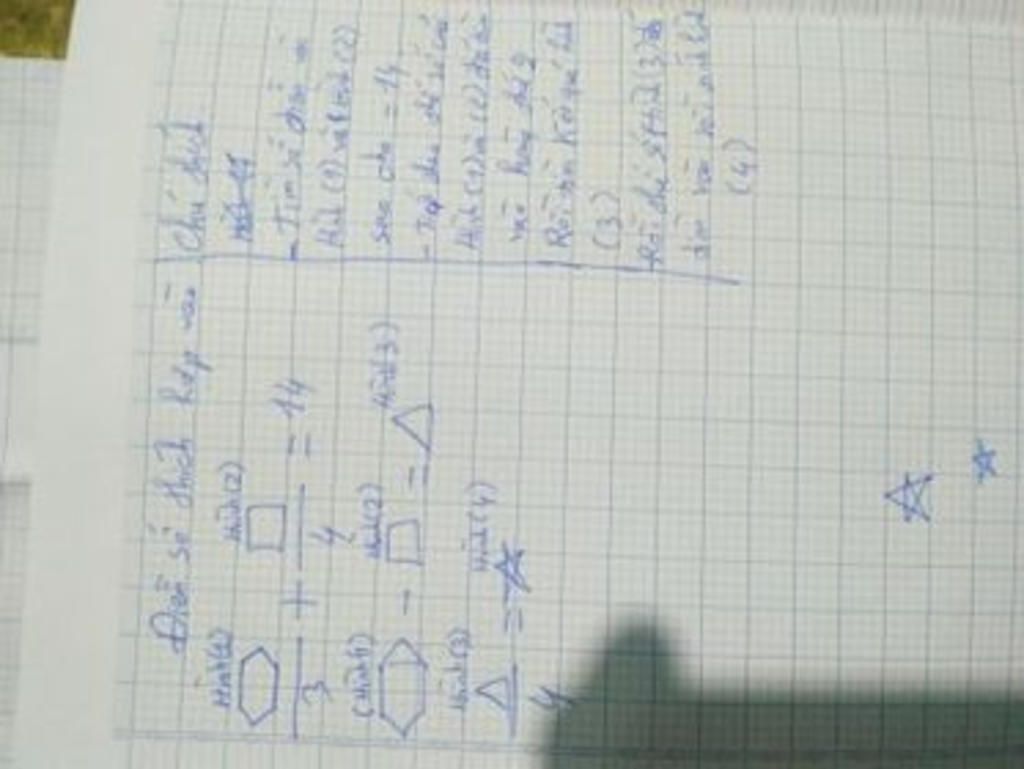 Điền số thích hợp vào
Hình(1) Hình(2)
+ = 14
3 4
(Hình1) Hình(2) Hình(3)
- =
Hình(3) Hình(4)
=
4
Chú thích
- Tìm số điền vào
Hình (1) và hình (2)
sao cho = 14
- Tiếp theo để số của
Hình (1) và (2)
vào hàng thứ 2
Rồi tìm kết quả hình
(3)
Rồi thế số hình (3)
(4)